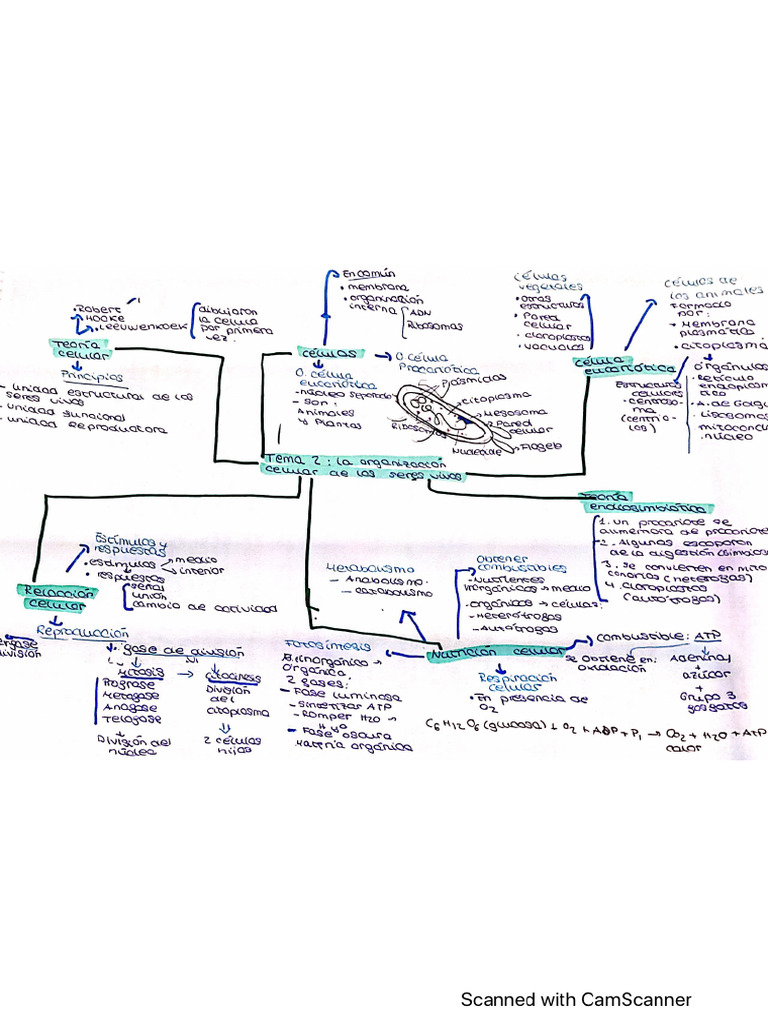 • Robert
Hooke
• Leeuwenhoek
dibujaron
la célula
por primera
vez.
Teoría
celular
Principios
- unidad estructura de los
seres vivos
- unidad funcional
- unidad reproductora
En común
• membrana
• organización
interna
ADN
Ribosomas
células
O célula
Procariótica
O. célula
eucariótica
- núcleo separado
- son:
Animales
y Plantas
Plásmidos
citoplasma
Mesosoma
Pared
celular
Ribosomas
Nucleoide
Flagelo
Células
vegetales
• otras
estructuras
• Pared
celular
• cloroplastos
• vacuolas
Células de
los animales
Formado
por:
• Membrana
plasmática
• citoplasma
Célula
eucariótica
Estructuras
• centroso-
ma
(centrio-
los)
orgánulos
• Retículo
endoplasm
• A. de Golgi
• Lisosomas
mitocond
núcleo
Tema 2: La organización
celular de los seres vivos
Teoría
endosimbiótica
1. un procariote se
2. Algunas escaparon
de la digestión
3. Se convierten en mito
condrias (heterótrofas)
4. cloroplastos
(autótrofas)
Relación
celular
Estímulos y
respuestas
• estímulos
medio
interior
• respuestas
señal
unión
cambio de actividad
Reproducción
división
fase de división
Mitosis
Profase
Metafase
Anafase
Telofase
División del
núcleo
citocinesis
División
del
citoplasma
2 células
hijas
Metabolismo
- Anabolismo.
- catabolismo
Obtener
combustibles
• Nutrientes
inorgánicos → medio
• orgánicos → células:
- Heterótrofas
- Autótrofas
Nutrición celular
combustible: ATP
se obtiene en:
oxidación
Adenina
+
azúcar
+
Grupo 3
fosfatos
Respiración
celular
• En presencia de
O2
C6H12O6 (glucosa) + O2 + ADP + Pi → CO2 + H2O + ATP
calor
Fotosíntesis
inorgánica →
orgánica.
2 fases:
- Fase luminosa
- sintetizar ATP
- Romper H2O
- Fase oscura
Materia orgánica
Scanned with CamScanner